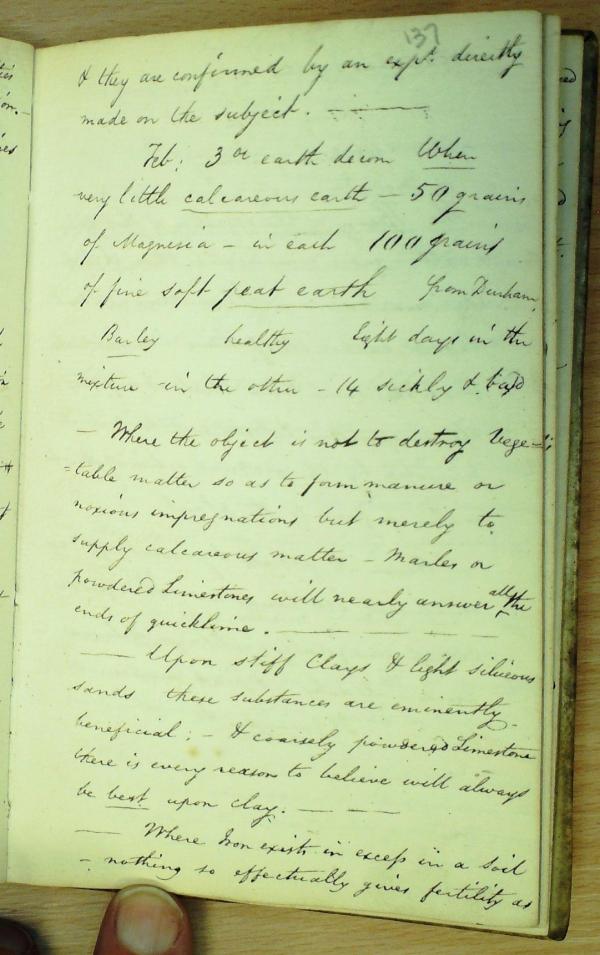 137
& they are confirmed by an expt. directly
made on the subject. —
Feb: 3 earth When
very little calcareous earth – 50 grains
of Magnesia – in each 100 grains
of fine soft peat earth from Durham.
Barley healthy Eight days in the
mixture – in the other – 14 sickly & bad
– Where the object is not to destroy Vege-
=table matter so as to form manure or
noxious impregnations but merely to
supply calcareous matter – Marles or
powdered Limestones will nearly answer all the
ends of quicklime. — — —
— Upon stiff Clays & light siliceous
sands these substances are eminently
beneficial; – & coarsely powdered Limestone
there is every reason to believe will always
be best upon clay. — —
— Where Iron exists in excess in a Soil
– nothing so effectually gives fertility as